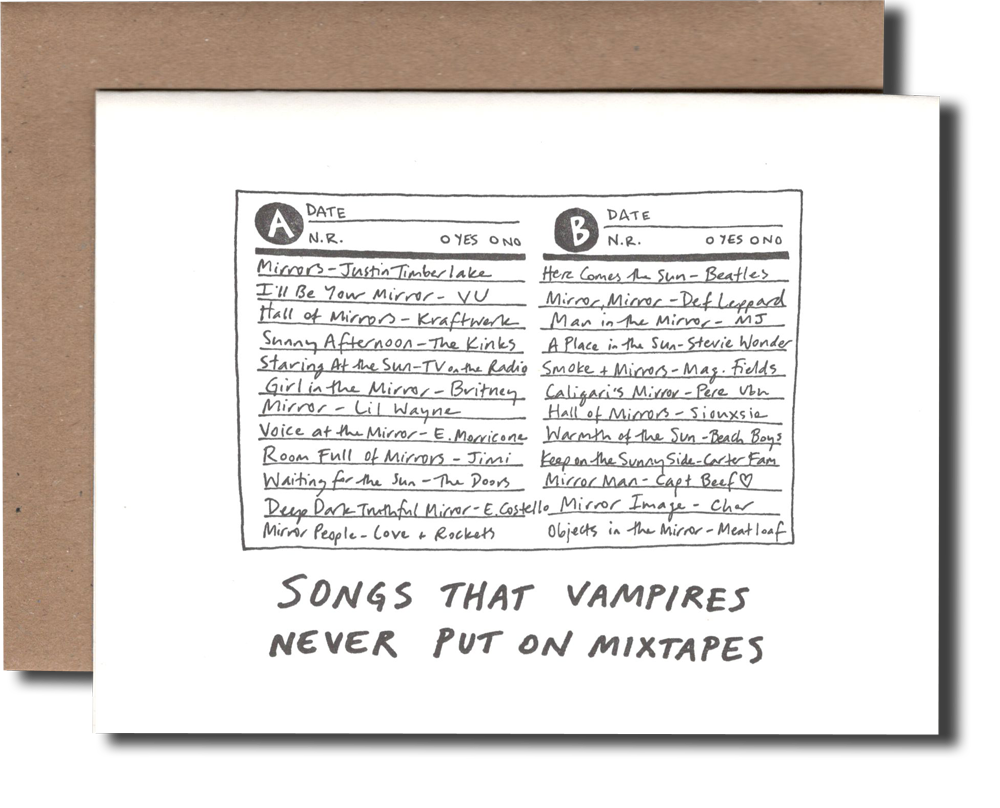 A DATE
N.R. O YES O NO
Mirrors - Justin Timberlake
I'll Be Your Mirror - VU
Hall of Mirrors - Kraftwerk
Sunny Afternoon - The Kinks
Staring At the Sun - TV on the Radio
Girl in the Mirror - Britney
Mirror - Lil Wayne
Voice at the Mirror - E. Morricone
Room Full of Mirrors - Jimi
Waiting for the Sun - The Doors
Deep Dark Truthful Mirror - E. Costello
Mirror People - Love + Rockets
B DATE
N.R. O YES O NO
Here Comes the Sun - Beatles
Mirror, Mirror - Def Leppard
Man in the Mirror - MJ
A Place in the Sun - Stevie Wonder
Smoke + Mirrors - Mag. Fields
Caligari's Mirror - Pere Ubu
Hall of Mirrors - Siouxsie
Warmth of the Sun - Beach Boys
Keep on the Sunny Side - Carter Fam
Mirror Man - Capt Beef♡
Mirror Image - Cher
Objects in the Mirror - Meatloaf
SONGS THAT VAMPIRES
NEVER PUT ON MIXTAPES